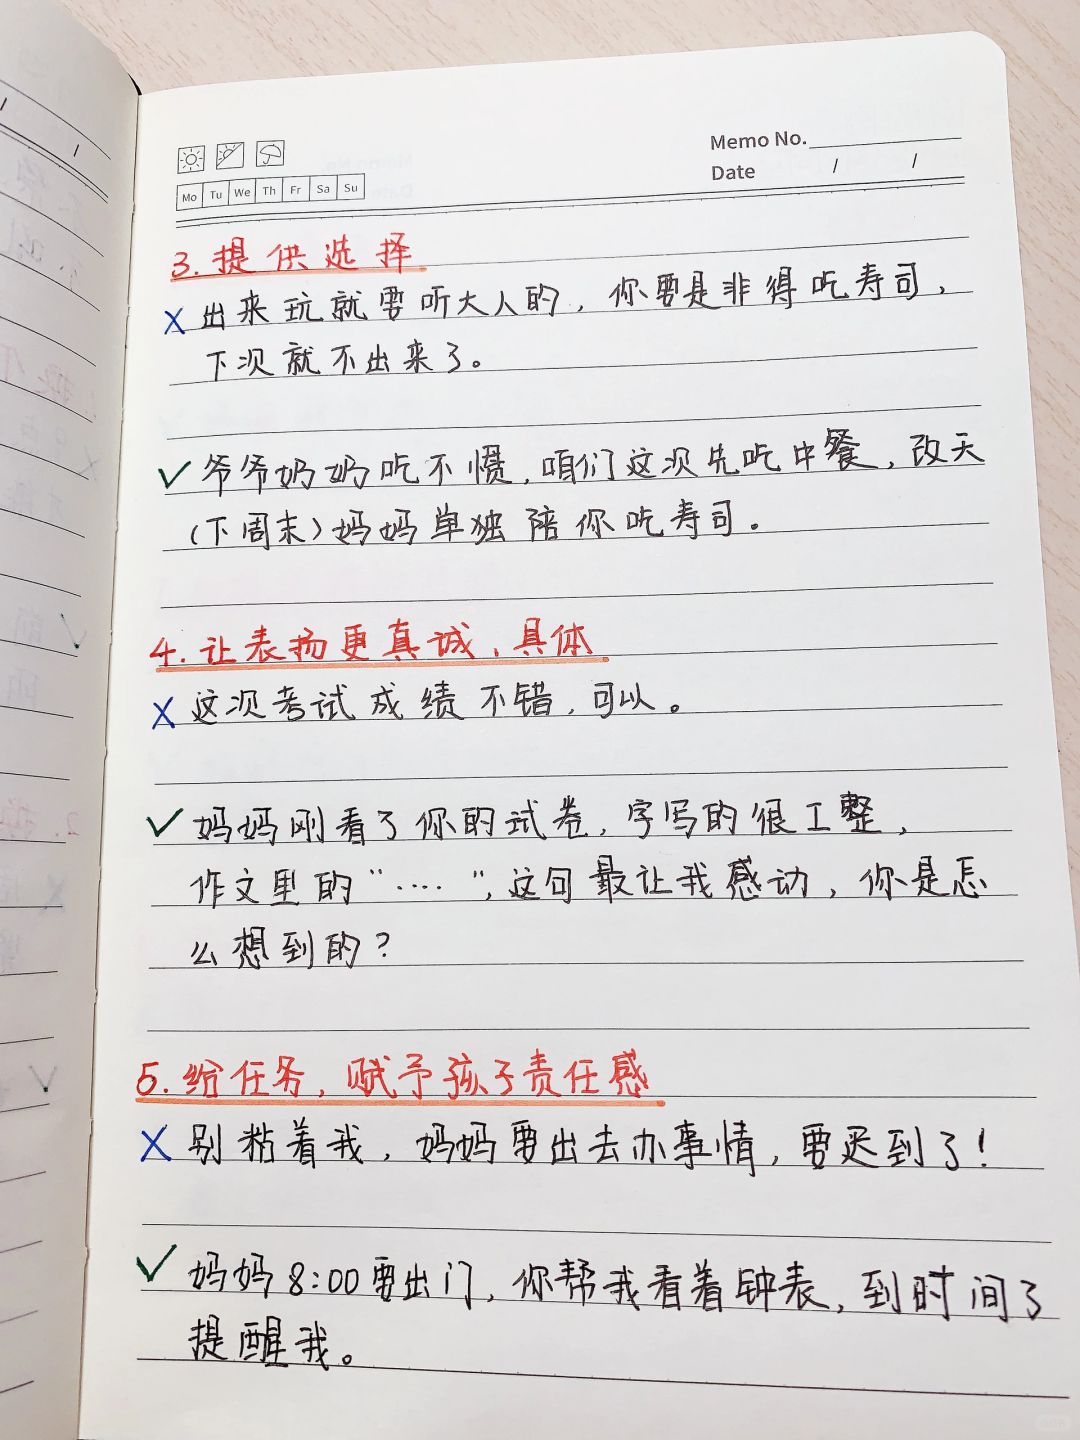 Memo No.
Mo Tu We Th Fr Sa Su
Date / /
3. 提供选择
X 出来玩就要听大人的，你要是非得吃寿司，
下次就不出来了。
✓ 爷爷奶奶吃不惯，咱们这次先吃中餐，改天
（下周末）妈妈单独陪你吃寿司。
4. 让表扬更真诚、具体
X 这次考试成绩不错，可以。
✓ 妈妈刚看了你的试卷，字写的很工整，
作文里的“····”，这句最让我感动，你是怎
么想到的？
5. 给任务，赋予孩子责任感
X 别粘着我，妈妈要出去办事情，要迟到了！
✓ 妈妈8:00要出门，你帮我看着钟表，到时间了
提醒我。